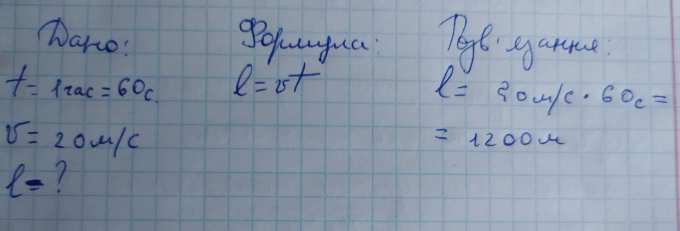 Дано:
t = 1 час = 60с.
v = 20м/с
l = ?
Формула:
l = vt
Розв'язання:
l = 20м/с · 60с =
= 1200м